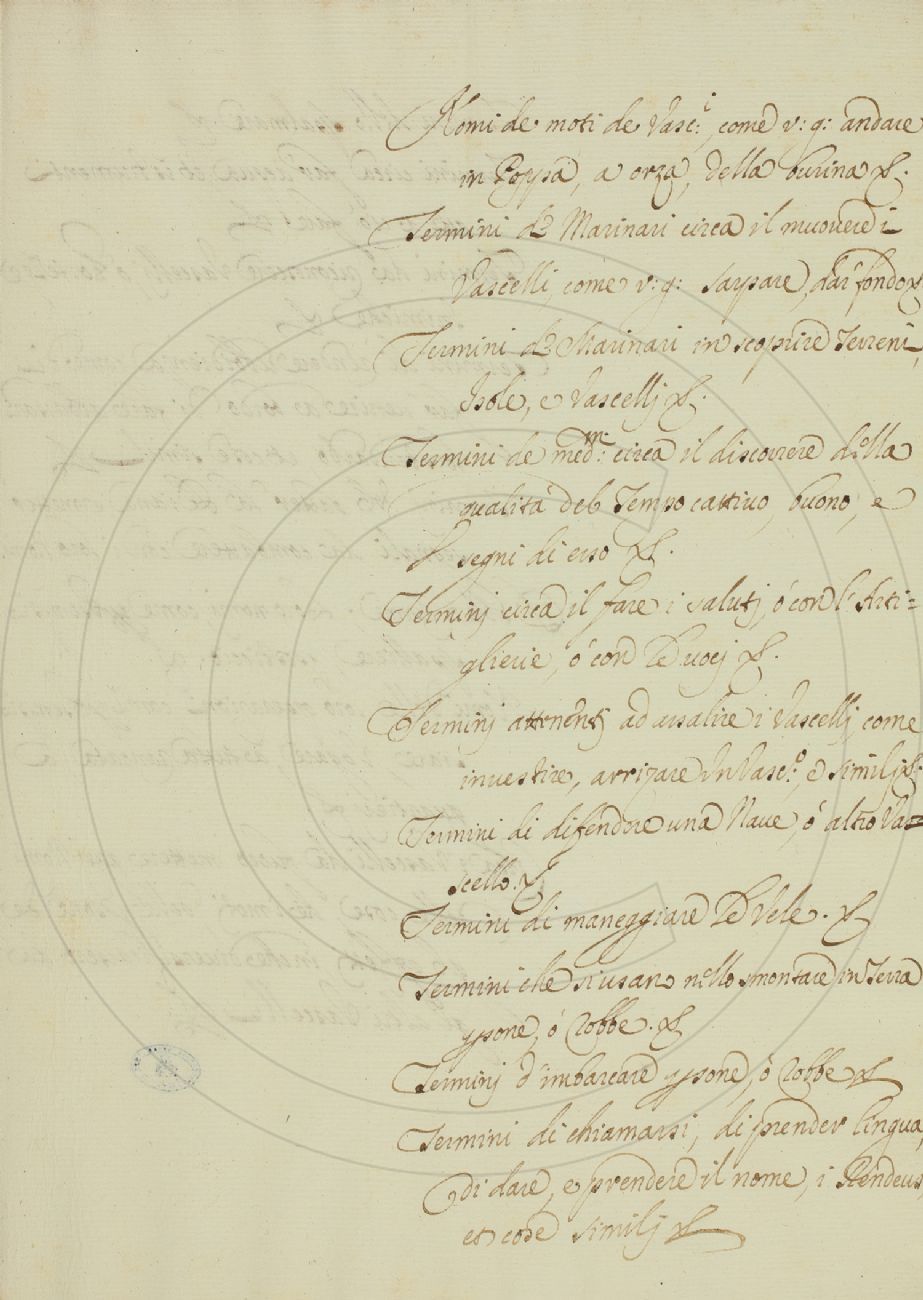 Nomi de moti de Vasc:i, come v: g: andare
in Poppa, a orza, della burina &.
Termini de Marinari circa il muovere i
Vascelli, come v: g: sarpare, dar fondo &
Termini de Marinari in scoprire Terreni,
Isole, e Vascellj &.
Termini de med:mi circa il discorrere della
qualità del Tempo cattiuo, buono, e
segni di esso &.
Terminj circa il fare i salutj, ó con l'Arti=
glierie, ó con le uocj &.
Terminj attinentj ad assalire i Vascellj come
inuestire, arrizare un Vasc:o, e similj &.
Termini di difendere una Naue, ó altro Va=
scello. &
Termini di maneggiare le Vele. &
Termini che si usano nello smontare in Terra
psone, ó robbe. &
Terminj d'imbarcare psone, ò robbe &
Termini di chiamarsi, di prender lingua,
di dare, e prendere il nome, i Rendeus,
et cose similj &